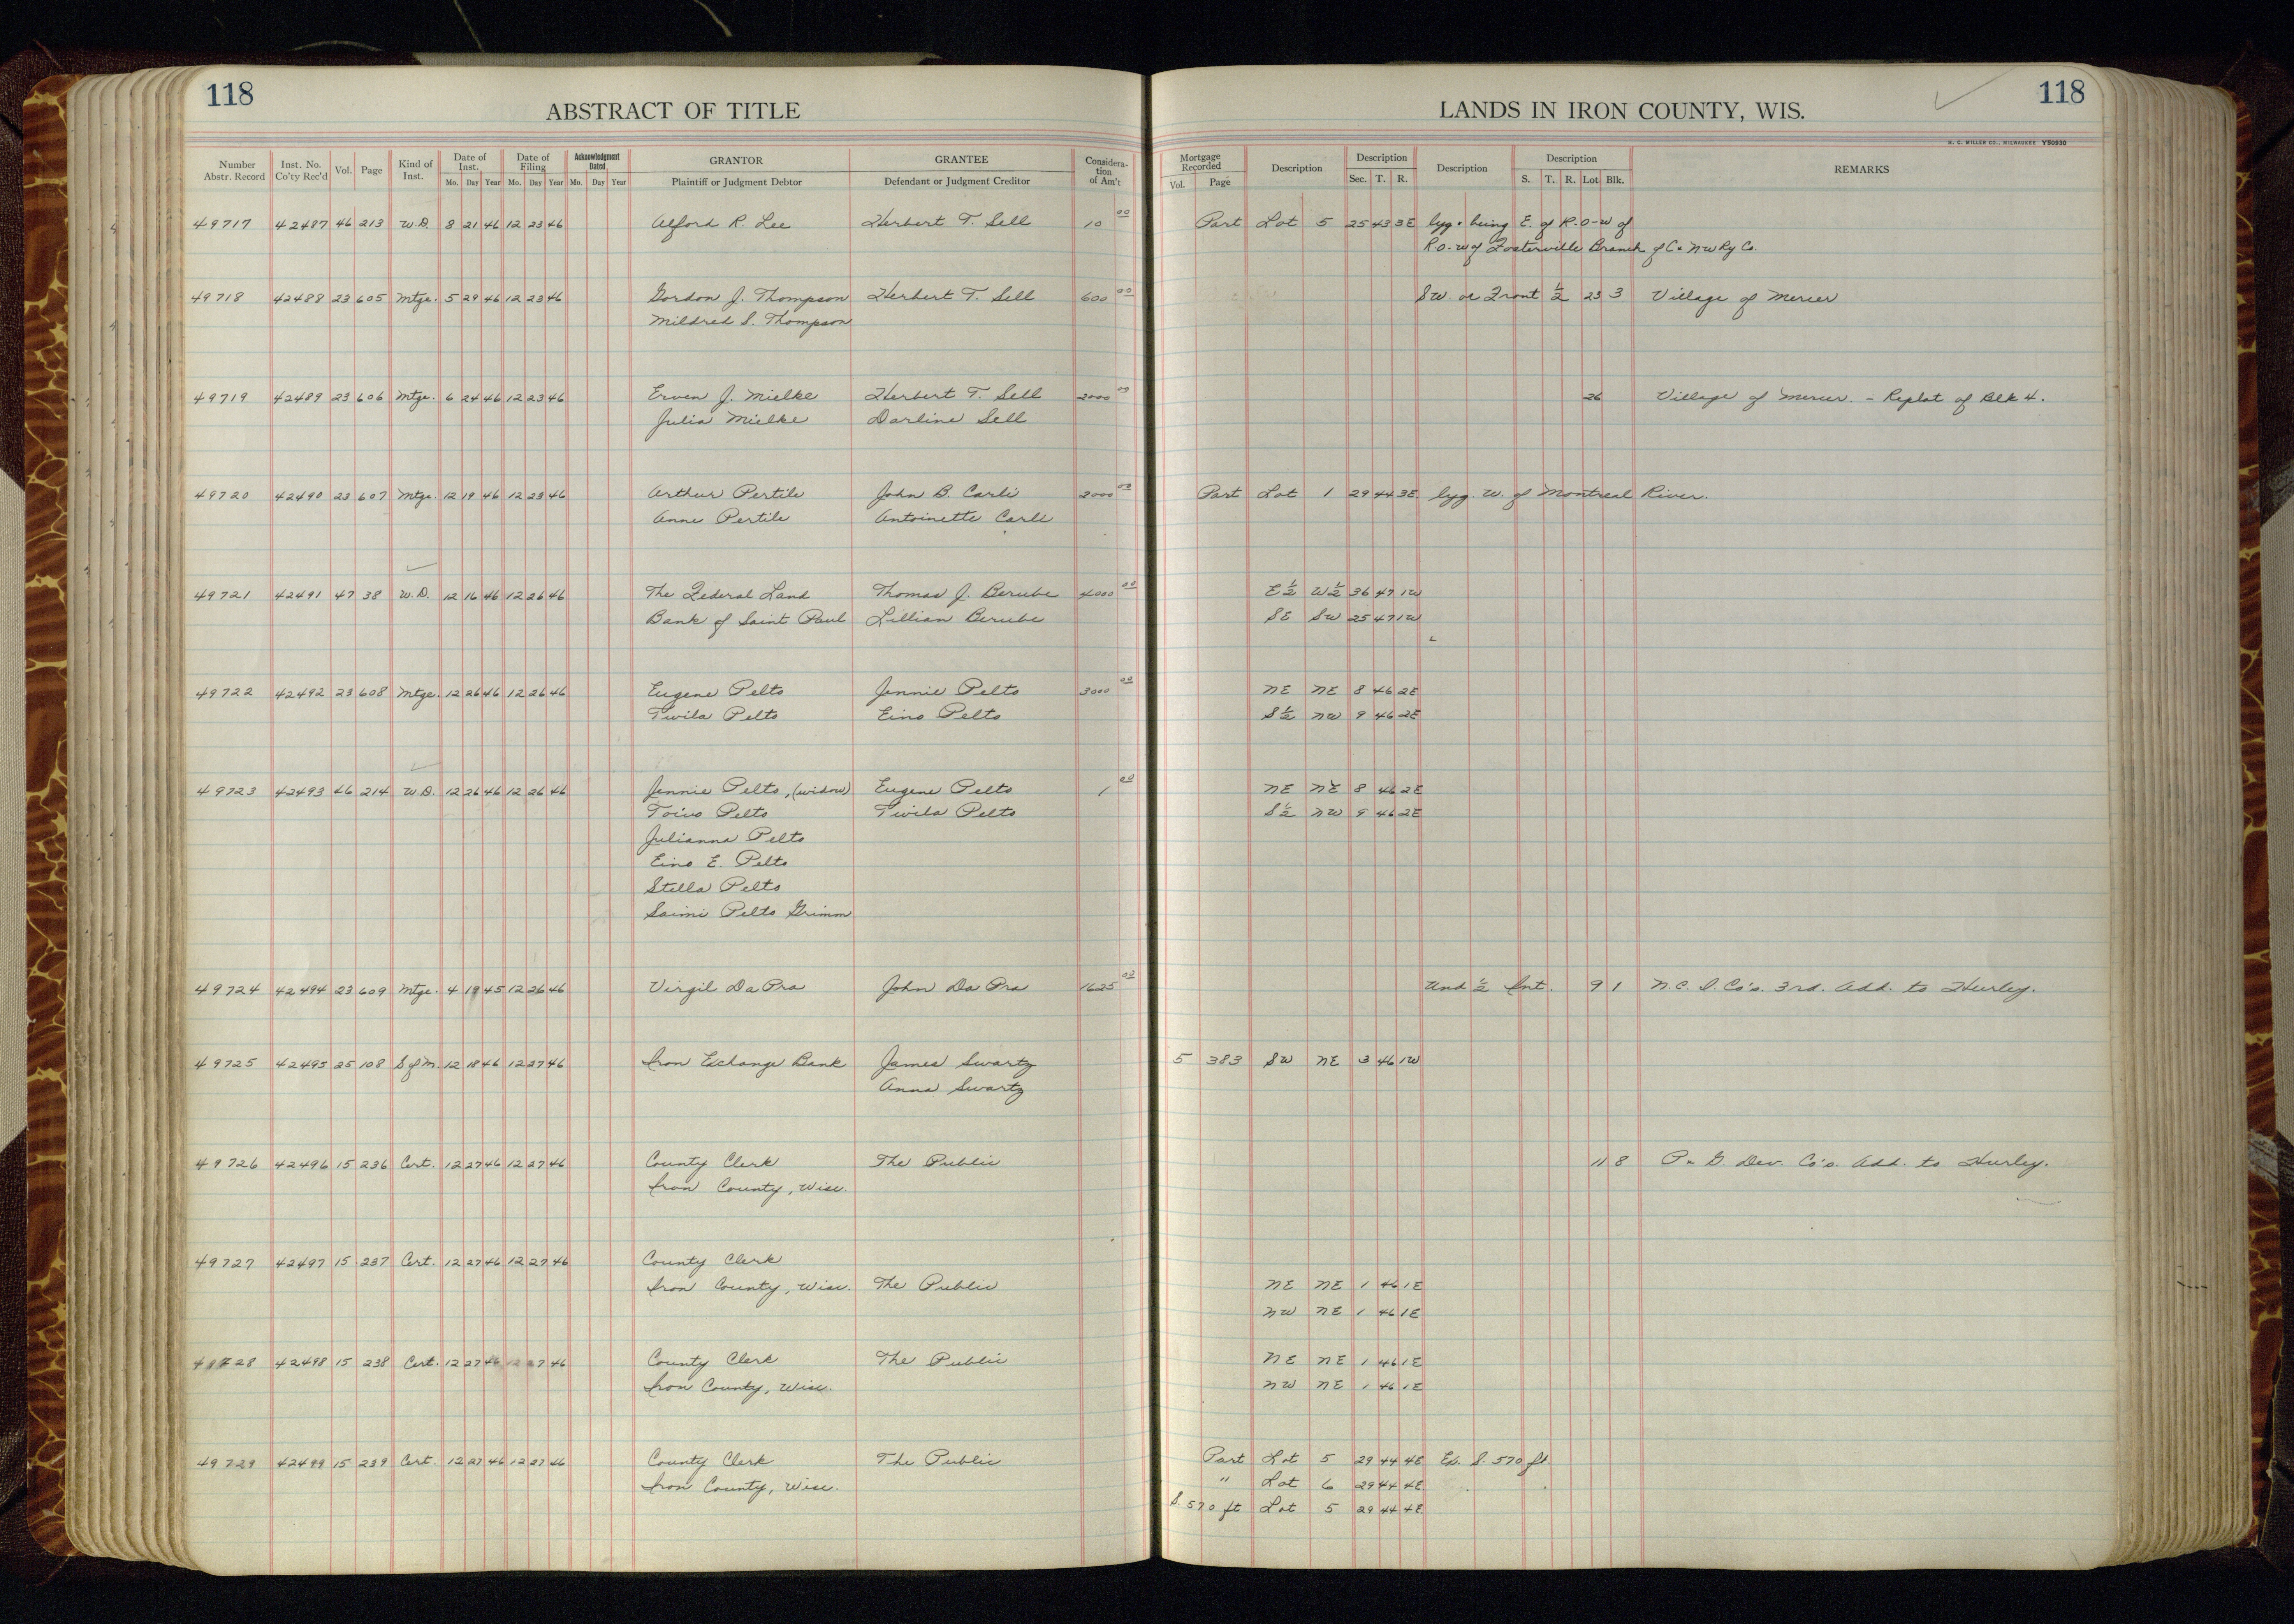 118
ABSTRACT OF TITLE
LANDS IN IRON COUNTY, WIS.
118
H. C. MILLER CO., MILWAUKEE Y50930
Number Abstr. Record Inst. No. Co'ty Rec'd Vol. Page Kind of Inst. Date of Inst. Mo. Day Year Date of Filing Mo. Day Year Acknowledgment Dated Mo. Day Year GRANTOR Plaintiff or Judgment Debtor GRANTEE Defendant or Judgment Creditor Considera-tion of Am't Mortgage Recorded Vol. Page Description Description Sec. T. R. Description Description S. T. R. Lot Blk. REMARKS
49717 42487 46 213 W.D. 8 21 46 12 23 46 Alford R. Lee Herbert T. Sell 10 00 Part Lot 5 25 43 3E lyg. & being E. of R.O-W of
R.O.-W of Fosterville Branch of C. & N W Ry Co.
49718 42488 23 605 Mtge. 5 29 46 12 23 46 Gordon J. Thompson Herbert T. Sell 600 00 SW. or Front ½ 23 3 Village of Mercer
Mildred S. Thompson
49719 42489 23 606 Mtge. 6 24 46 12 23 46 Erven J. Mielke Herbert T. Sell 2000 00 26 Village of Mercer. - Replat of Blk 4.
Julia Mielke Darline Sell
49720 42490 23 607 Mtge. 12 19 46 12 23 46 Arthur Pertile John B. Carli 2000 00 Part Lot 1 29 44 3E. lyg. W. of Montreal River.
Anne Pertile Antoinette Carli
49721 42491 47 38 W.D. 12 16 46 12 26 46 The Federal Land Thomas J. Berube 4000 00 E½ W½ 36 47 1W
Bank of Saint Paul Lillian Berube SE SW 25 47 1W
49722 42492 23 608 Mtge. 12 26 46 12 26 46 Eugene Pelto Jennie Pelto 3000 00 NE NE 8 46 2E
Twila Pelto Eino Pelto S½ NW 9 46 2E
49723 42493 46 214 W.D. 12 26 46 12 26 46 Jennie Pelto, (widow) Eugene Pelto 1 00 NE NE 8 46 2E
Toivo Pelto Twila Pelto S½ NW 9 46 2E
Julianna Pelto
Eino E. Pelto
Stella Pelto
Saimi Pelto Grimm
49724 42494 23 609 Mtge. 4 19 45 12 26 46 Virgil Da Pra John Da Pra 1625 00 Und ½ Int. 9 1 N.C. I. Co's. 3rd. Add. to Hurley.
49725 42495 25 108 S of M. 12 18 46 12 27 46 Iron Exchange Bank James Swartz 5 383 SW NE 3 46 1W
Anna Swartz
49726 42496 15 236 Cert. 12 27 46 12 27 46 County Clerk The Public 11 8 P. & G. Dev. Co's. Add. to Hurley.
Iron County, Wisc.
49727 42497 15 237 Cert. 12 27 46 12 27 46 County Clerk
Iron County, Wisc. The Public NE NE 1 46 1E
NW NE 1 46 1E
49728 42498 15 238 Cert. 12 27 46 12 27 46 County Clerk The Public NE NE 1 46 1E
Iron County, Wisc. NW NE 1 46 1E
49729 42499 15 239 Cert. 12 27 46 12 27 46 County Clerk The Public Part Lot 5 29 44 4E Ex. S. 570 ft.
Iron County, Wisc. " Lot 6 29 44 4E
S. 570 ft Lot 5 29 44 4E.